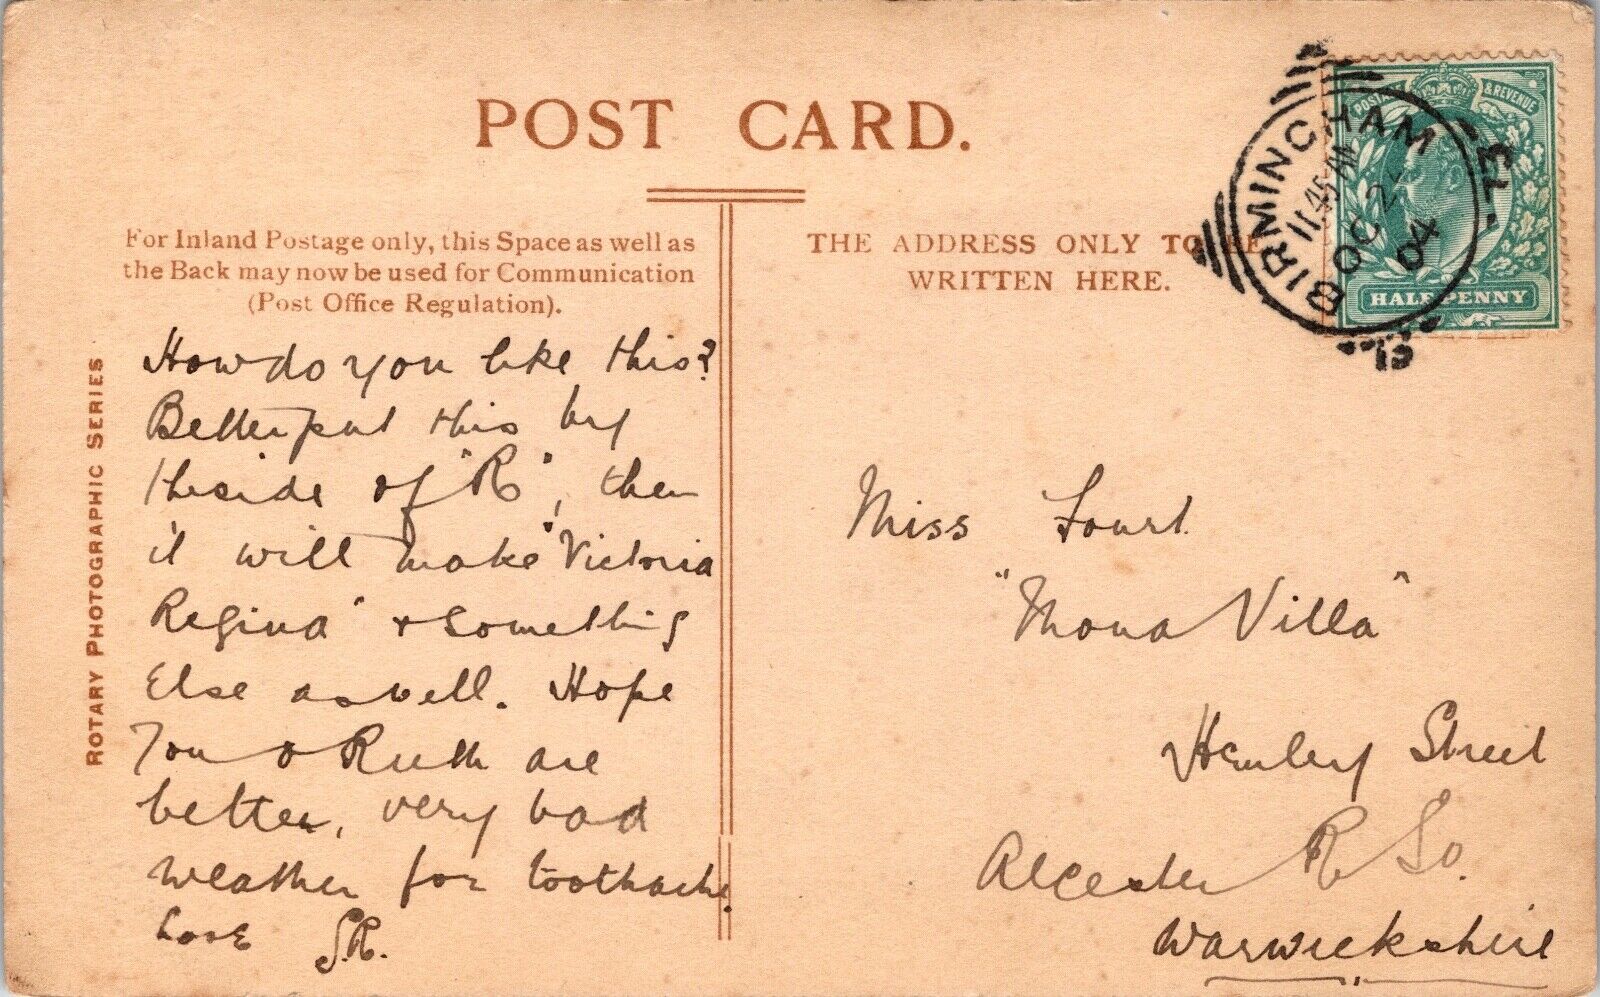 POST CARD.
For Inland Postage only, this Space as well as
the Back may now be used for Communication
(Post Office Regulation).
THE ADDRESS ONLY TO BE
WRITTEN HERE.
ROTARY PHOTOGRAPHIC SERIES
BIRMINGHAM
11 45 AM
OC 24
04
POSTAGE & REVENUE
HALFPENNY
How do you like this?
Better put this by
the side of "R", then
it will make "Victoria
Regina" & something
Else as well. Hope
You & Ruth are
better, very bad
weather for toothache.
Love S.R.
Miss
"Mona Villa"
Henley Street
Alcester R So.
Warwickshire